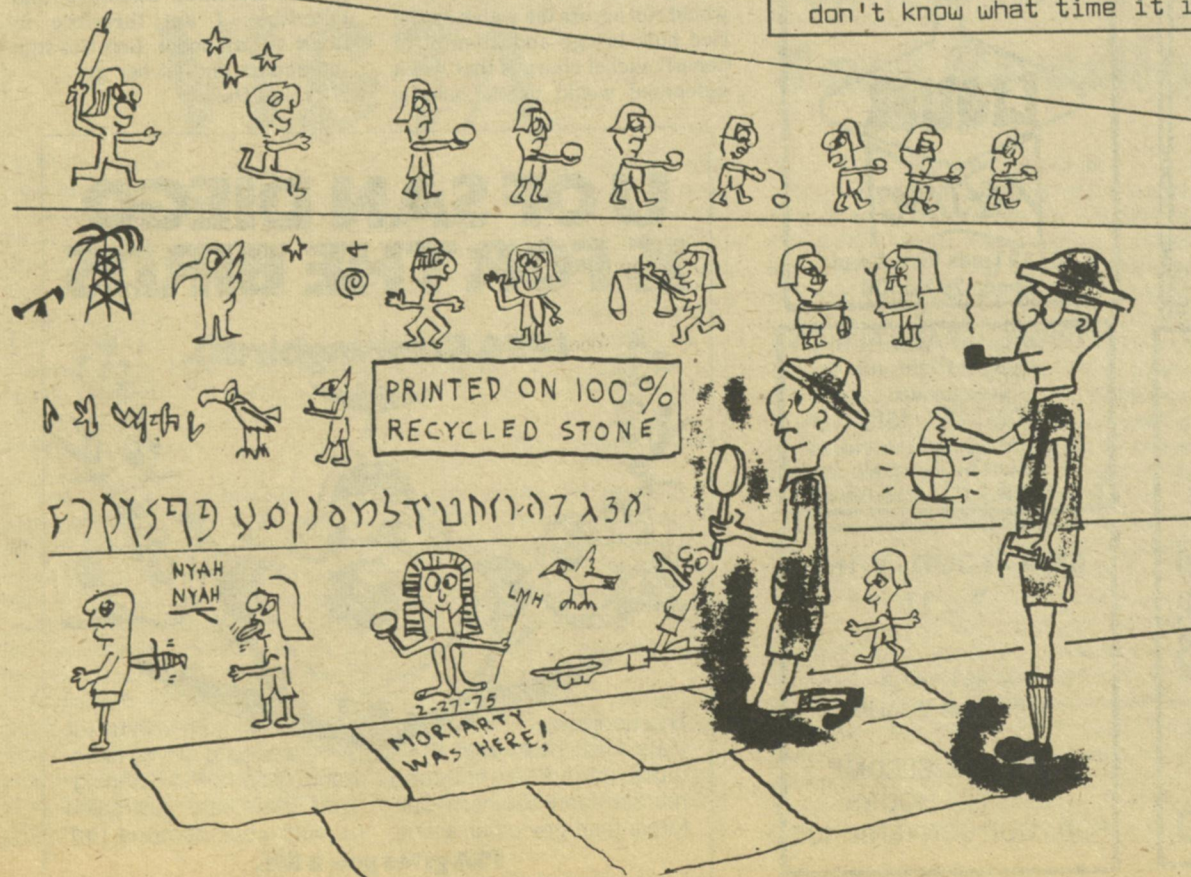 don't know what time it i
PRINTED ON 100%
RECYCLED STONE
NYAH
NYAH
LMH
2-27-75
MORIARTY
WAS HERE!